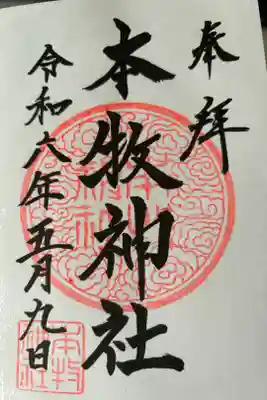 奉拝
本牧神社
令和六年五月九日
本牧
神社